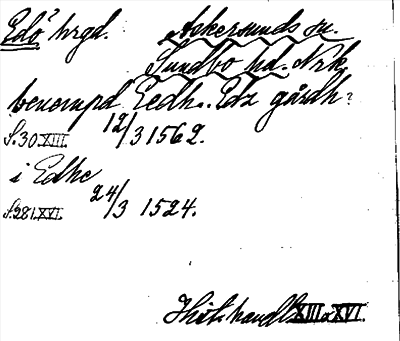 Edö hrgd. Askersunds sn.
Sundbo hd. Nrk.
benempd Eedh. Edz gårdh
S. 30 XIII. 12/3 1562.
i Edhe
S. 281. XVI. 24/3 1524.
Hist. handl. XIII o XVI.